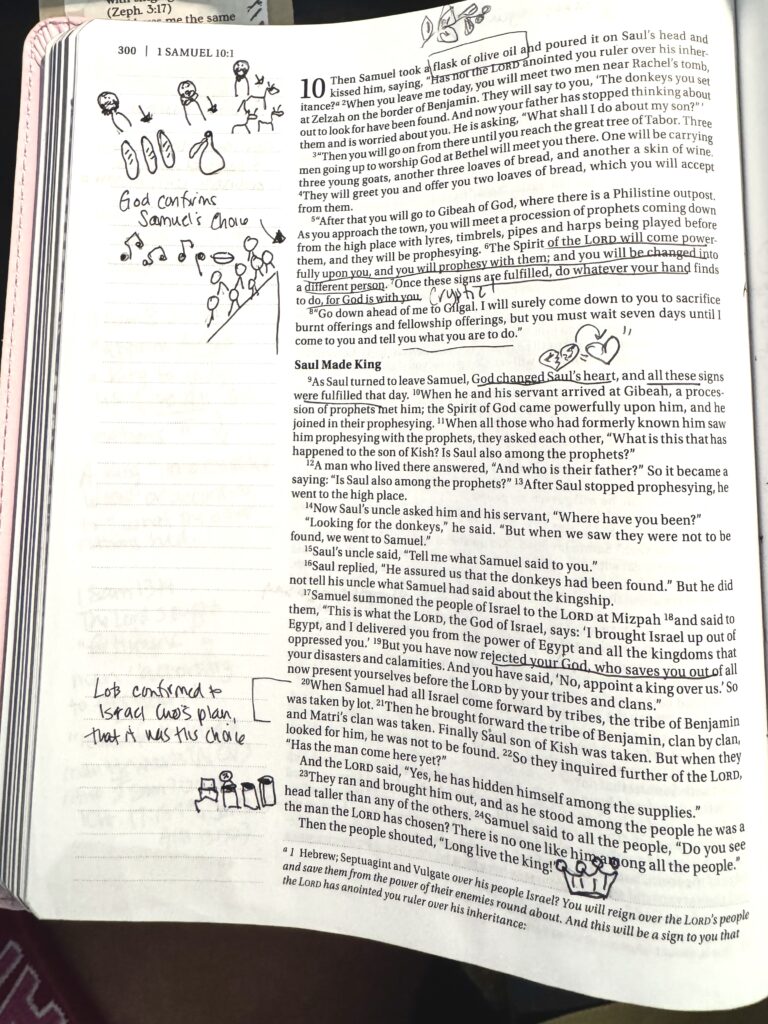 (Zeph. 3:17)
me the same
300 | 1 SAMUEL 10:1
10 Then Samuel took a flask of olive oil and poured it on Saul's head and
kissed him, saying, "Has not the LORD anointed you ruler over his inher-
itance?ᵃ ²When you leave me today, you will meet two men near Rachel's tomb,
at Zelzah on the border of Benjamin. They will say to you, 'The donkeys you set
out to look for have been found. And now your father has stopped thinking about
them and is worried about you. He is asking, "What shall I do about my son?"'
³"Then you will go on from there until you reach the great tree of Tabor. Three
men going up to worship God at Bethel will meet you there. One will be carrying
three young goats, another three loaves of bread, and another a skin of wine.
⁴They will greet you and offer you two loaves of bread, which you will accept
from them.
God confirms
Samuel's choice
⁵"After that you will go to Gibeah of God, where there is a Philistine outpost.
As you approach the town, you will meet a procession of prophets coming down
from the high place with lyres, timbrels, pipes and harps being played before
them, and they will be prophesying. ⁶The Spirit of the LORD will come power-
fully upon you, and you will prophesy with them; and you will be changed into
a different person. ⁷Once these signs are fulfilled, do whatever your hand finds
to do, for God is with you. Cryptic!
⁸"Go down ahead of me to Gilgal. I will surely come down to you to sacrifice
burnt offerings and fellowship offerings, but you must wait seven days until I
come to you and tell you what you are to do."
Saul Made King
⁹As Saul turned to leave Samuel, God changed Saul's heart, and all these signs
were fulfilled that day. ¹⁰When he and his servant arrived at Gibeah, a proces-
sion of prophets met him; the Spirit of God came powerfully upon him, and he
joined in their prophesying. ¹¹When all those who had formerly known him saw
him prophesying with the prophets, they asked each other, "What is this that has
happened to the son of Kish? Is Saul also among the prophets?"
¹²A man who lived there answered, "And who is their father?" So it became a
saying: "Is Saul also among the prophets?" ¹³After Saul stopped prophesying, he
went to the high place.
¹⁴Now Saul's uncle asked him and his servant, "Where have you been?"
"Looking for the donkeys," he said. "But when we saw they were not to be
found, we went to Samuel."
¹⁵Saul's uncle said, "Tell me what Samuel said to you."
¹⁶Saul replied, "He assured us that the donkeys had been found." But he did
not tell his uncle what Samuel had said about the kingship.
¹⁷Samuel summoned the people of Israel to the LORD at Mizpah ¹⁸and said to
them, "This is what the LORD, the God of Israel, says: 'I brought Israel up out of
Egypt, and I delivered you from the power of Egypt and all the kingdoms that
oppressed you.' ¹⁹But you have now rejected your God, who saves you out of all
your disasters and calamities. And you have said, 'No, appoint a king over us.' So
now present yourselves before the LORD by your tribes and clans."
Lots confirmed to
Israel God's plan,
that it was His choice
²⁰When Samuel had all Israel come forward by tribes, the tribe of Benjamin
was taken by lot. ²¹Then he brought forward the tribe of Benjamin, clan by clan,
and Matri's clan was taken. Finally Saul son of Kish was taken. But when they
looked for him, he was not to be found. ²²So they inquired further of the LORD,
"Has the man come here yet?"
And the LORD said, "Yes, he has hidden himself among the supplies."
²³They ran and brought him out, and as he stood among the people he was a
head taller than any of the others. ²⁴Samuel said to all the people, "Do you see
the man the LORD has chosen? There is no one like him among all the people."
Then the people shouted, "Long live the king!"
ᵃ 1 Hebrew; Septuagint and Vulgate over his people Israel? You will reign over the LORD's people
and save them from the power of their enemies round about. And this will be a sign to you that
the LORD has anointed you ruler over his inheritance: